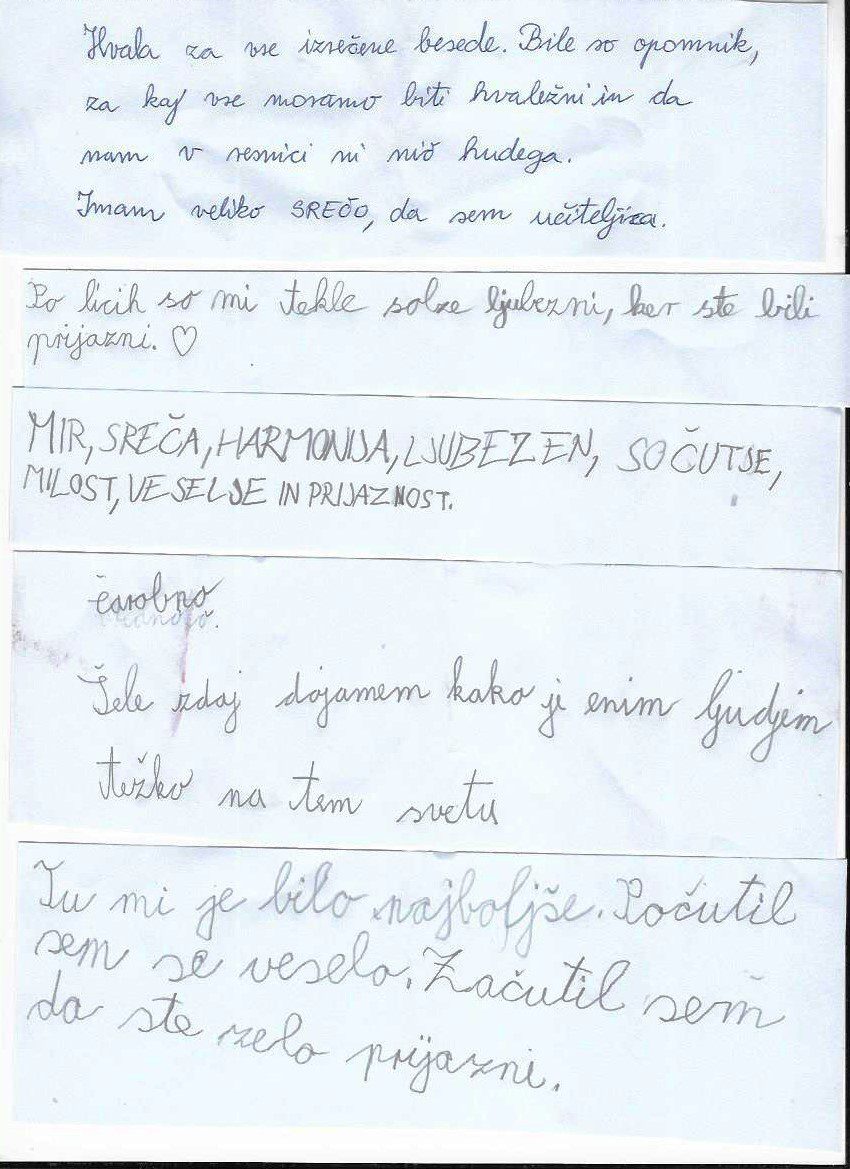 Hvala za vse izrečene besede. Bile so opomnik,
za kaj vse moramo biti hvaležni in da
nam v resnici ni nič hudega.
Imam veliko SREČO, da sem učiteljica.
Po licih so mi tekle solze ljubezni, ker ste bili
prijazni. ♡
MIR, SREČA, HARMONIJA, LJUBEZEN, SOČUTJE,
MILOST, VESELJE IN PRIJAZNOST.
čarobno
Šele zdaj dojamem kako je enim ljudjem
težko na tem svetu
Tu mi je bilo najboljše. Počutil
sem se veselo. Začutil sem
da ste zelo prijazni.